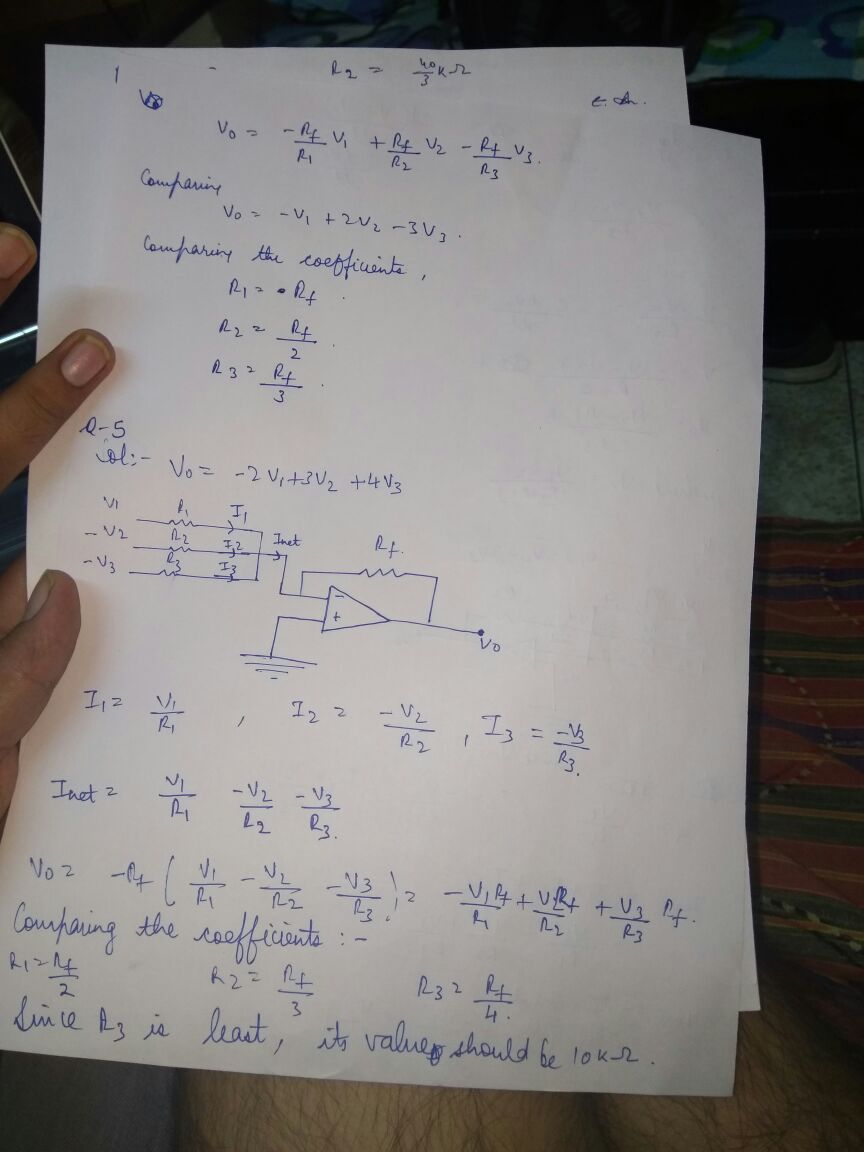 R2 = 40/3 KΩ
V0 = -Rf/R1 V1 + Rf/R2 V2 - Rf/R3 V3.
Comparing
V0 = -V1 + 2V2 - 3V3.
Comparing the coefficients,
R1 = Rf.
R2 = Rf/2.
R3 = Rf/3.
Q-5
Sol:- V0 = -2V1+3V2 +4V3
V1 R1 I1
-V2 R2 I2 Inet
-V3 R3 I3
Rf.
-
+
V0
I1 = V1/R1, I2 = -V2/R2, I3 = -V3/R3.
Inet = V1/R1 -V2/R2 -V3/R3.
V0 = -Rf ( V1/R1 - V2/R2 - V3/R3 ) = -V1Rf/R1 + V2Rf/R2 + V3/R3 Rf.
Comparing the coefficients :-
R1 = Rf/2 R2 = Rf/3 R3 = Rf/4.
Since R3 is least, its value should be 10KΩ.